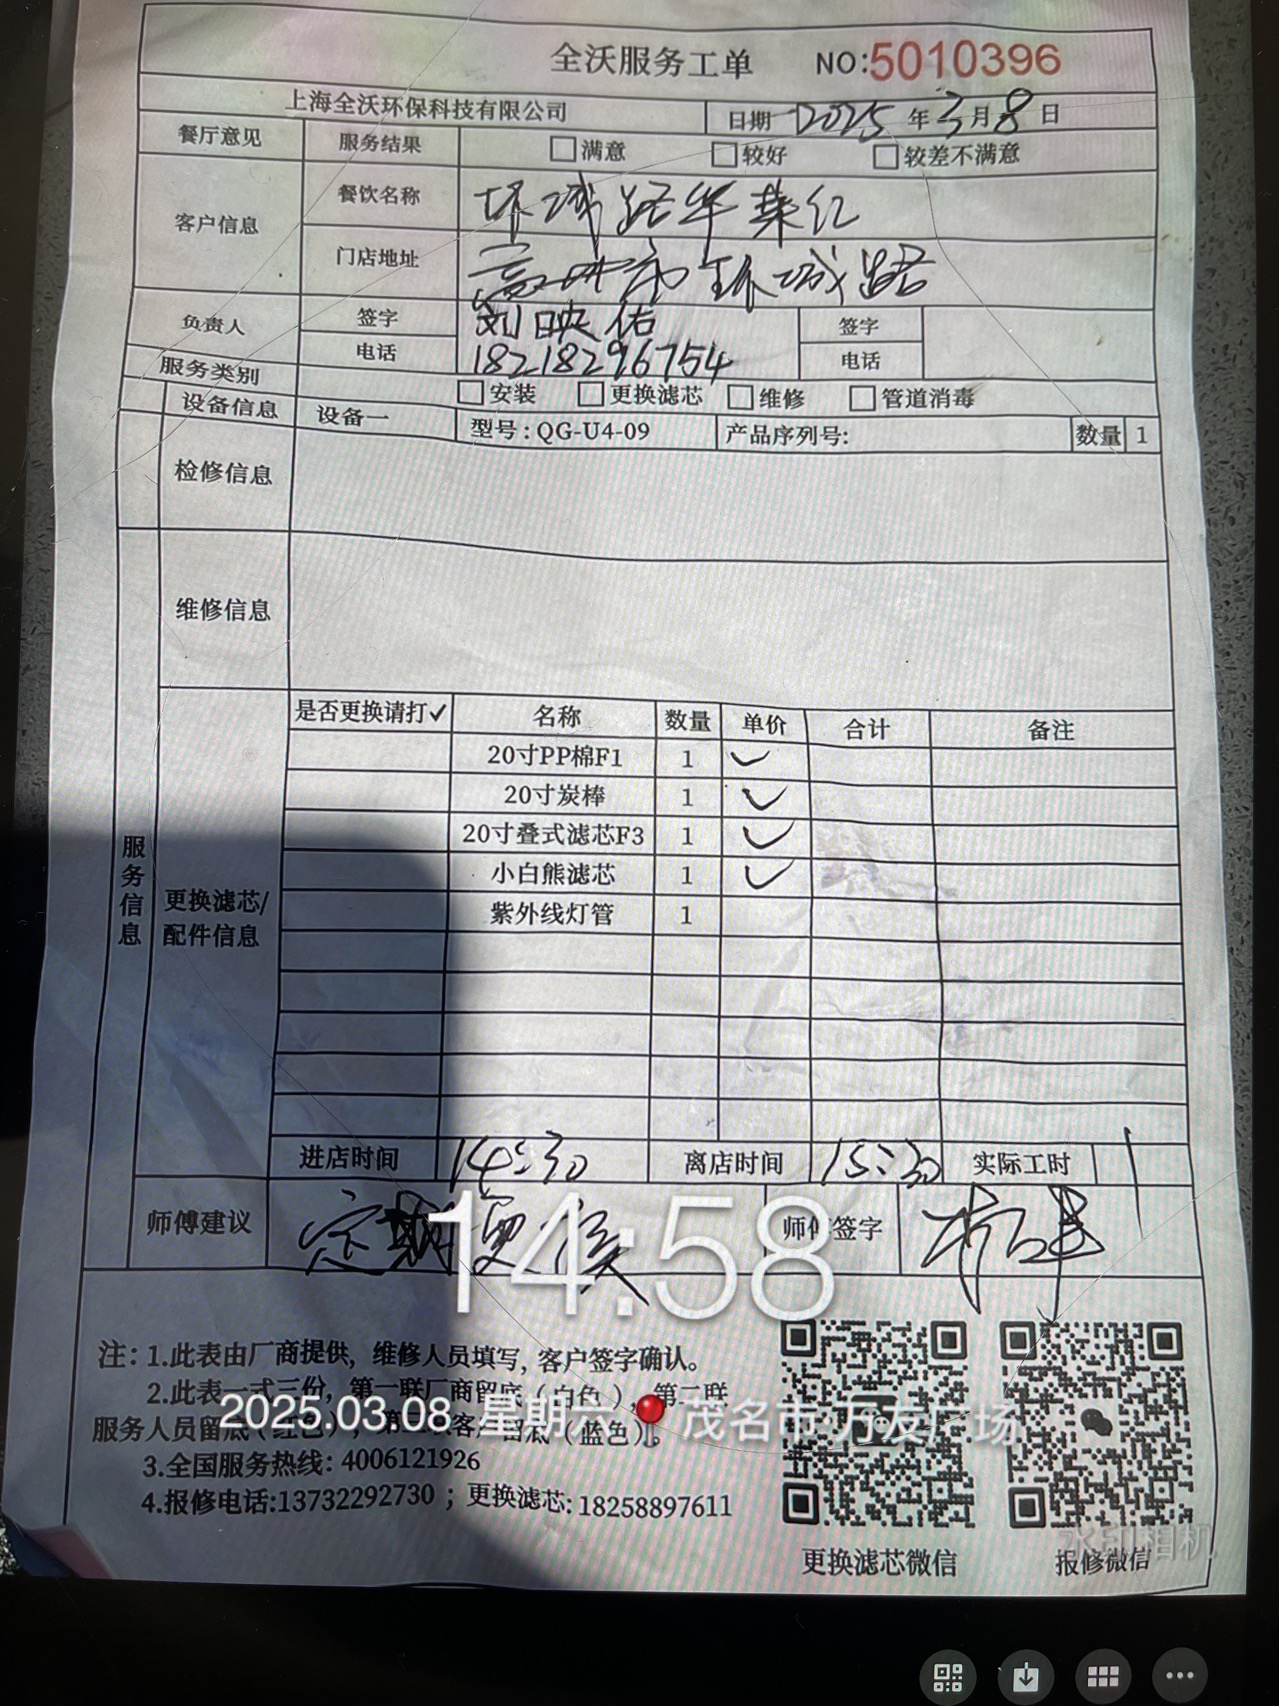 全沃服务工单 NO:5010396
上海全沃环保科技有限公司 日期 2025 年 3 月 8 日
餐厅意见 服务结果 满意 较好 较差不满意
客户信息 餐饮名称 环城路华莱仕
门店地址 高州市环城路
负责人 签字 刘映佑 签字
电话 18218296754 电话
服务类别 安装 更换滤芯 维修 管道消毒
设备信息 设备一 型号:QG-U4-09 产品序列号: 数量 1
检修信息
维修信息
服务信息
更换滤芯/配件信息
是否更换请打✓ 名称 数量 单价 合计 备注
20寸PP棉F1 1 ✓
20寸炭棒 1 ✓
20寸叠式滤芯F3 1 ✓
小白熊滤芯 1 ✓
紫外线灯管 1
进店时间 14:30 离店时间 15:30 实际工时 1
师傅建议 定期更换 师傅签字
14:58
注: 1.此表由厂商提供, 维修人员填写, 客户签字确认。
2.此表一式三份, 第一联厂商留底(白色), 第二联
服务人员留底(红色), 第三联客户留底(蓝色)。
2025.03.08 星期六 茂名市·万友广场
3.全国服务热线: 4006121926
4.报修电话:13732292730 ; 更换滤芯: 18258897611
更换滤芯微信 报修微信
水印相机